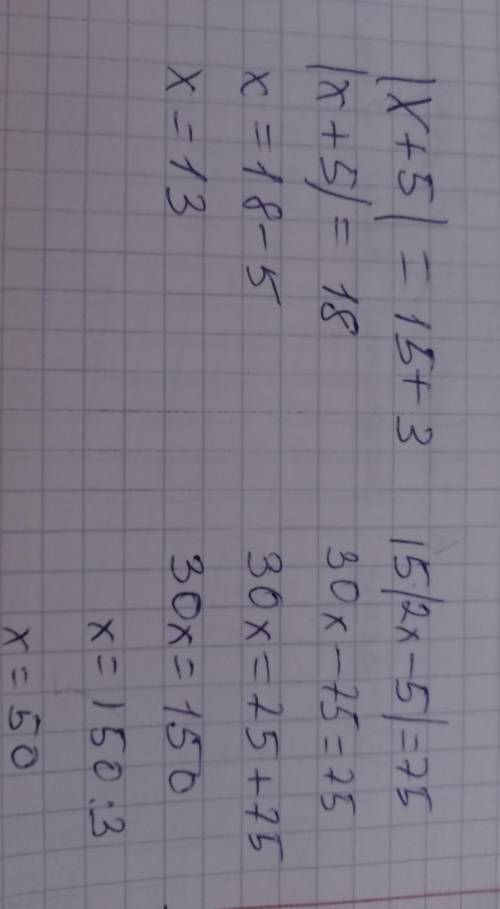 |x+5| = 15+3
|x+5| = 18
x = 18-5
x = 13
15|2x-5|=75
30x-75=75
30x=75+75
30x=150
x=150:3
x=50